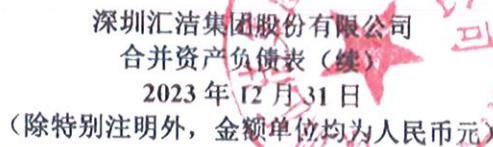 深圳汇洁集团股份有限公司
合并资产负债表（续）
2023 年 12 月 31 日
（除特别注明外，金额单位均为人民币元）